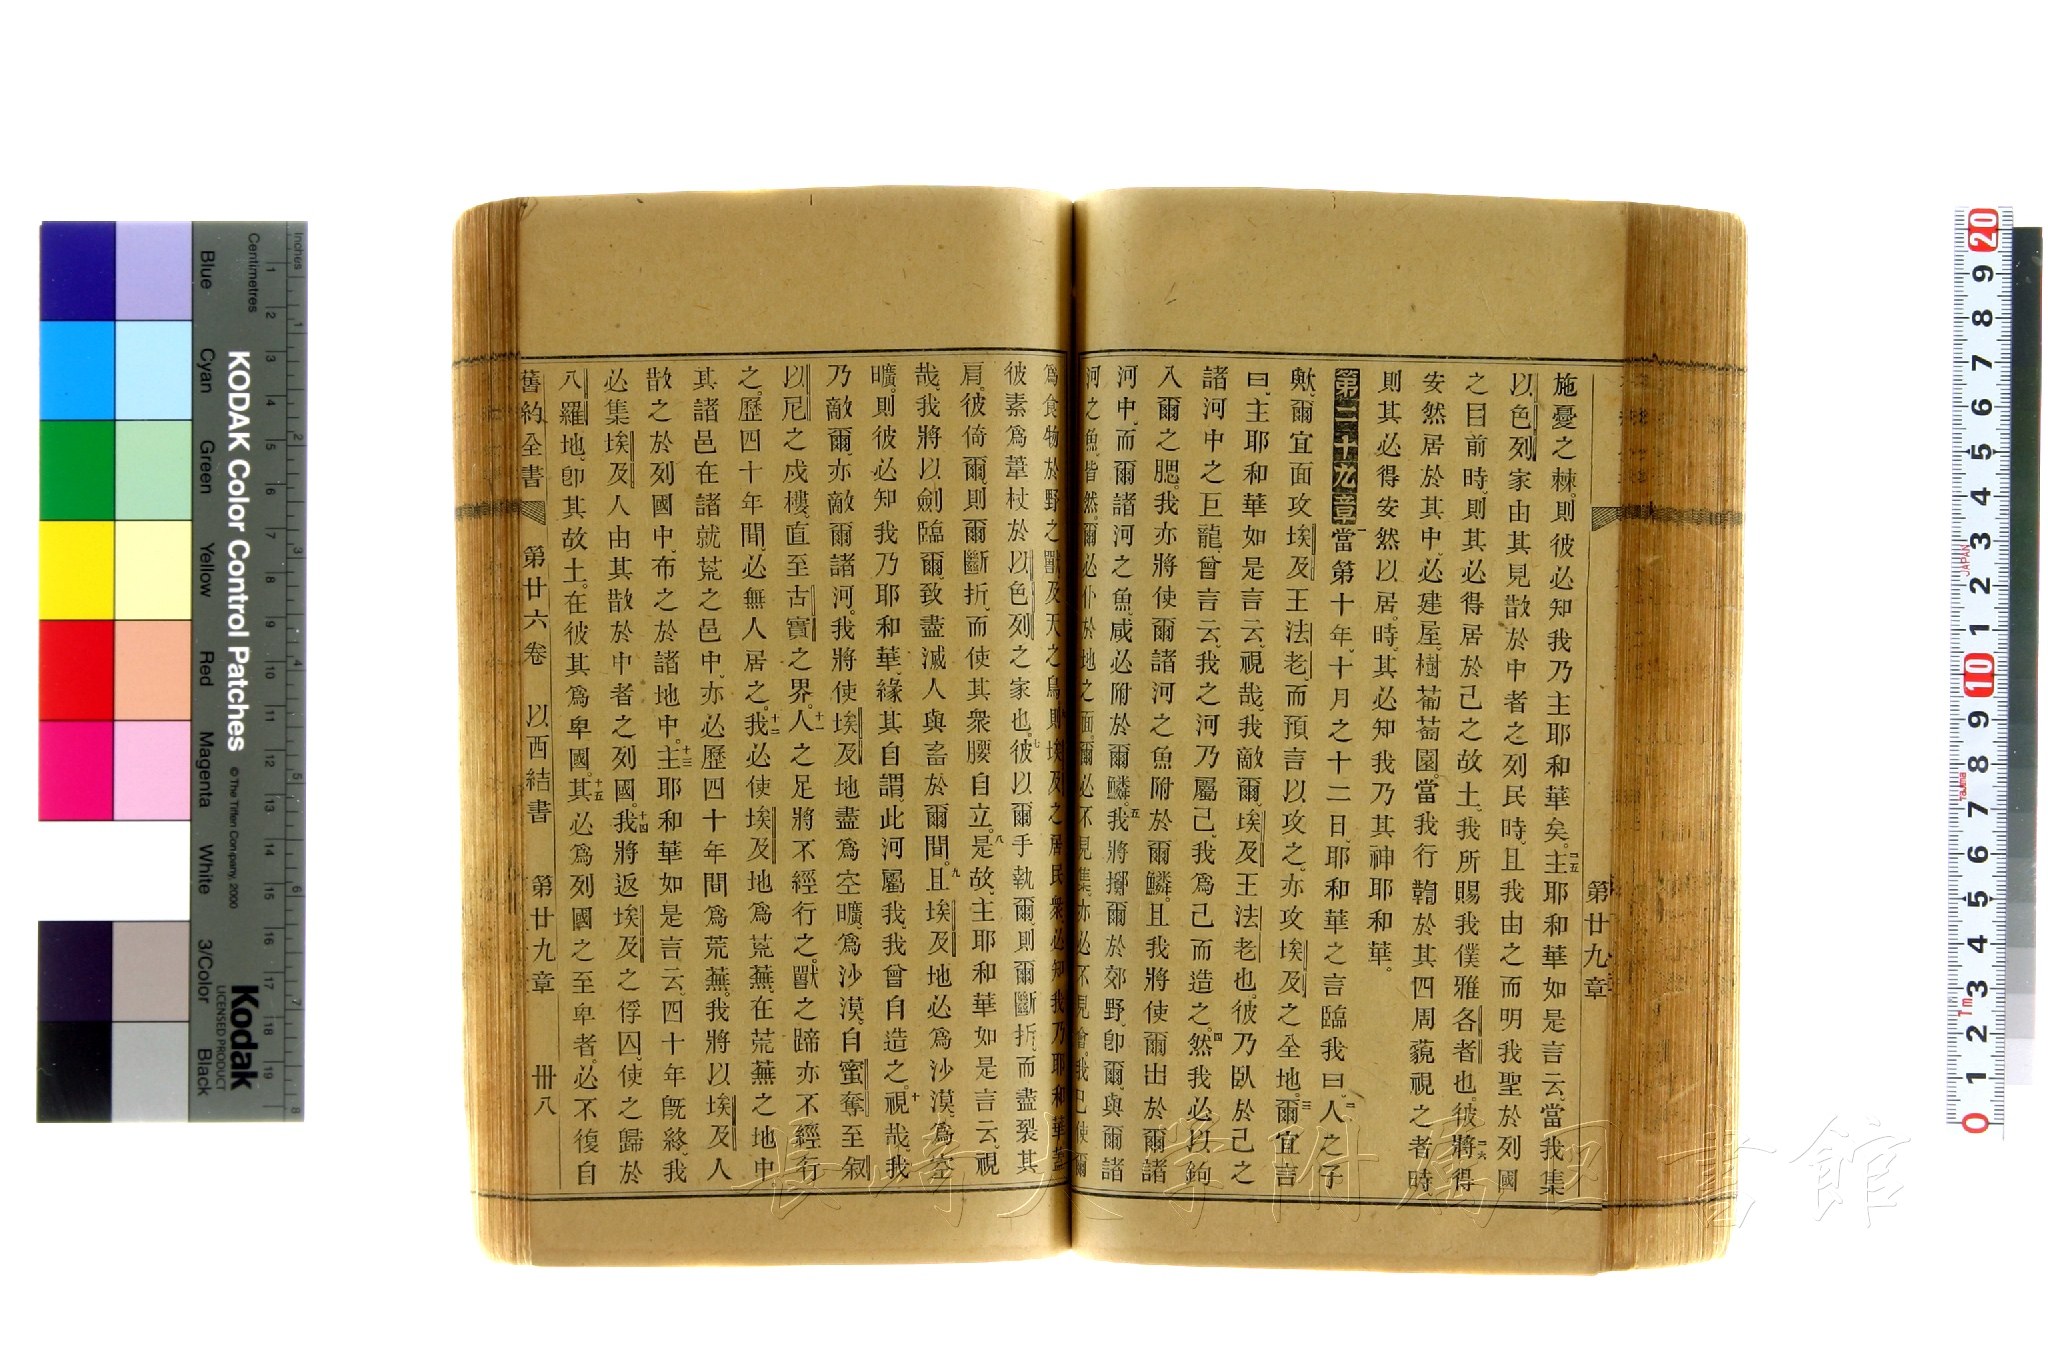 施憂之棘、則彼必知我乃主耶和華矣。二五主耶和華如是言云、當我集
以色列家由其見散於中者之列民時、且我由之而明我聖於列國
之目前時、則其必得居於己之故土、我所賜我僕雅各者也。二六彼將得
安然居於其中、必建屋、樹葡萄園、當我行鞫於其四周藐視之者時、
則其必得安然以居。時、其必知我乃其神耶和華。
第二十九章 一當第十年、十月之十二日、耶和華之言臨我曰、二人之子
歟、爾宜面攻埃及王法老、而預言以攻之、亦攻埃及之全地。三爾宜言
曰、主耶和華如是言云、視哉、我敵爾、埃及王法老也。彼乃臥於己之
諸河中之巨龍、曾言云、我之河乃屬己、我爲己而造之。四然我必以鉤
入爾之腮。我亦將使爾諸河之魚附於爾鱗。且我將使爾出於爾諸
河中、而爾諸河之魚、咸必附於爾鱗。五我將擲爾於郊野、卽爾與爾諸
河之魚、皆然。爾必仆於地之面、爾必不見集、亦必不見會。我已使爾
爲食物於野之獸及天之鳥。六則埃及之居民衆必知我乃耶和華、蓋
彼素爲葦杖於以色列之家也。七彼以爾手執爾、則爾斷折、而盡裂其
肩。彼倚爾、則爾斷折、而使其衆腰自立。八是故主耶和華如是言云、視
哉、我將以劍臨爾、致盡滅人與畜於爾間。九且埃及地必爲沙漠、爲空
曠、則彼必知我乃耶和華、緣其自謂、此河屬我、我曾自造之。十視哉、我
乃敵爾、亦敵爾諸河。我將使埃及地盡爲空曠、爲沙漠、自蜜奪至叙
以尼之戍樓、直至古實之界。十一人之足將不經行之。獸之蹄亦不經行
之。歷四十年間、必無人居之。十二我必使埃及地爲荒蕪、在荒蕪之地中、
其諸邑在諸就荒之邑中、亦必歷四十年間爲荒蕪。我將以埃及人
散之於列國中、布之於諸地中。十三主耶和華如是言云、四十年旣終、我
必集埃及人由其散於中者之列國。十四我將返埃及之俘囚、使之歸於
八羅地、卽其故土。在彼其爲卑國。十五其必爲列國之至卑者。必不復自
舊約全書 第廿六卷 以西結書 第廿九章 卅八
第廿九章
KODAK Color Control Patches
© The Tiffen Company, 2000
Kodak
LICENSED PRODUCT
Inches
Centimetres
Blue
Cyan
Green
Yellow
Red
Magenta
White
3/Color
Black
JAPAN
Tajima
長崎大学附属図書館